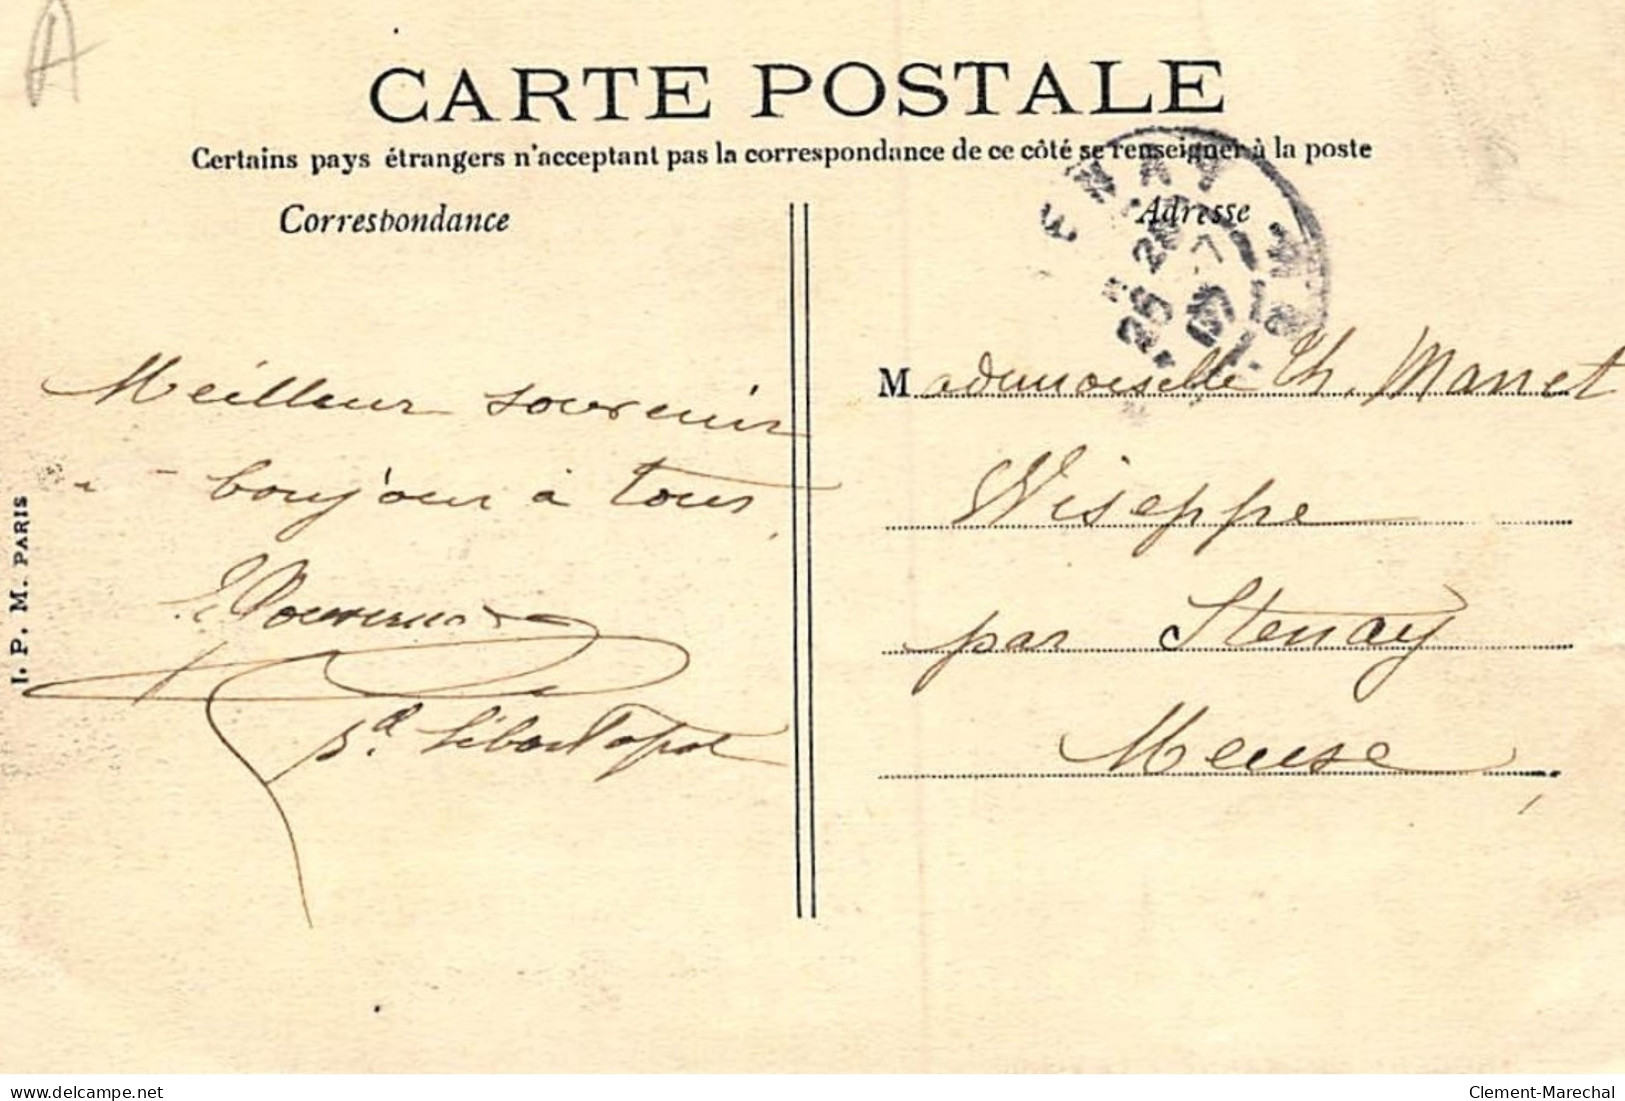 A
CARTE POSTALE
Certains pays étrangers n'acceptant pas la correspondance de ce côté se renseigner à la poste
Correspondance
Adresse
Meilleur souvenir
bonjour à tous
Mademoiselle Th. Manset
Wiseppe
par Stenay
Meuse
I. P. M. PARIS
delcampe.net
Clement-Marechal